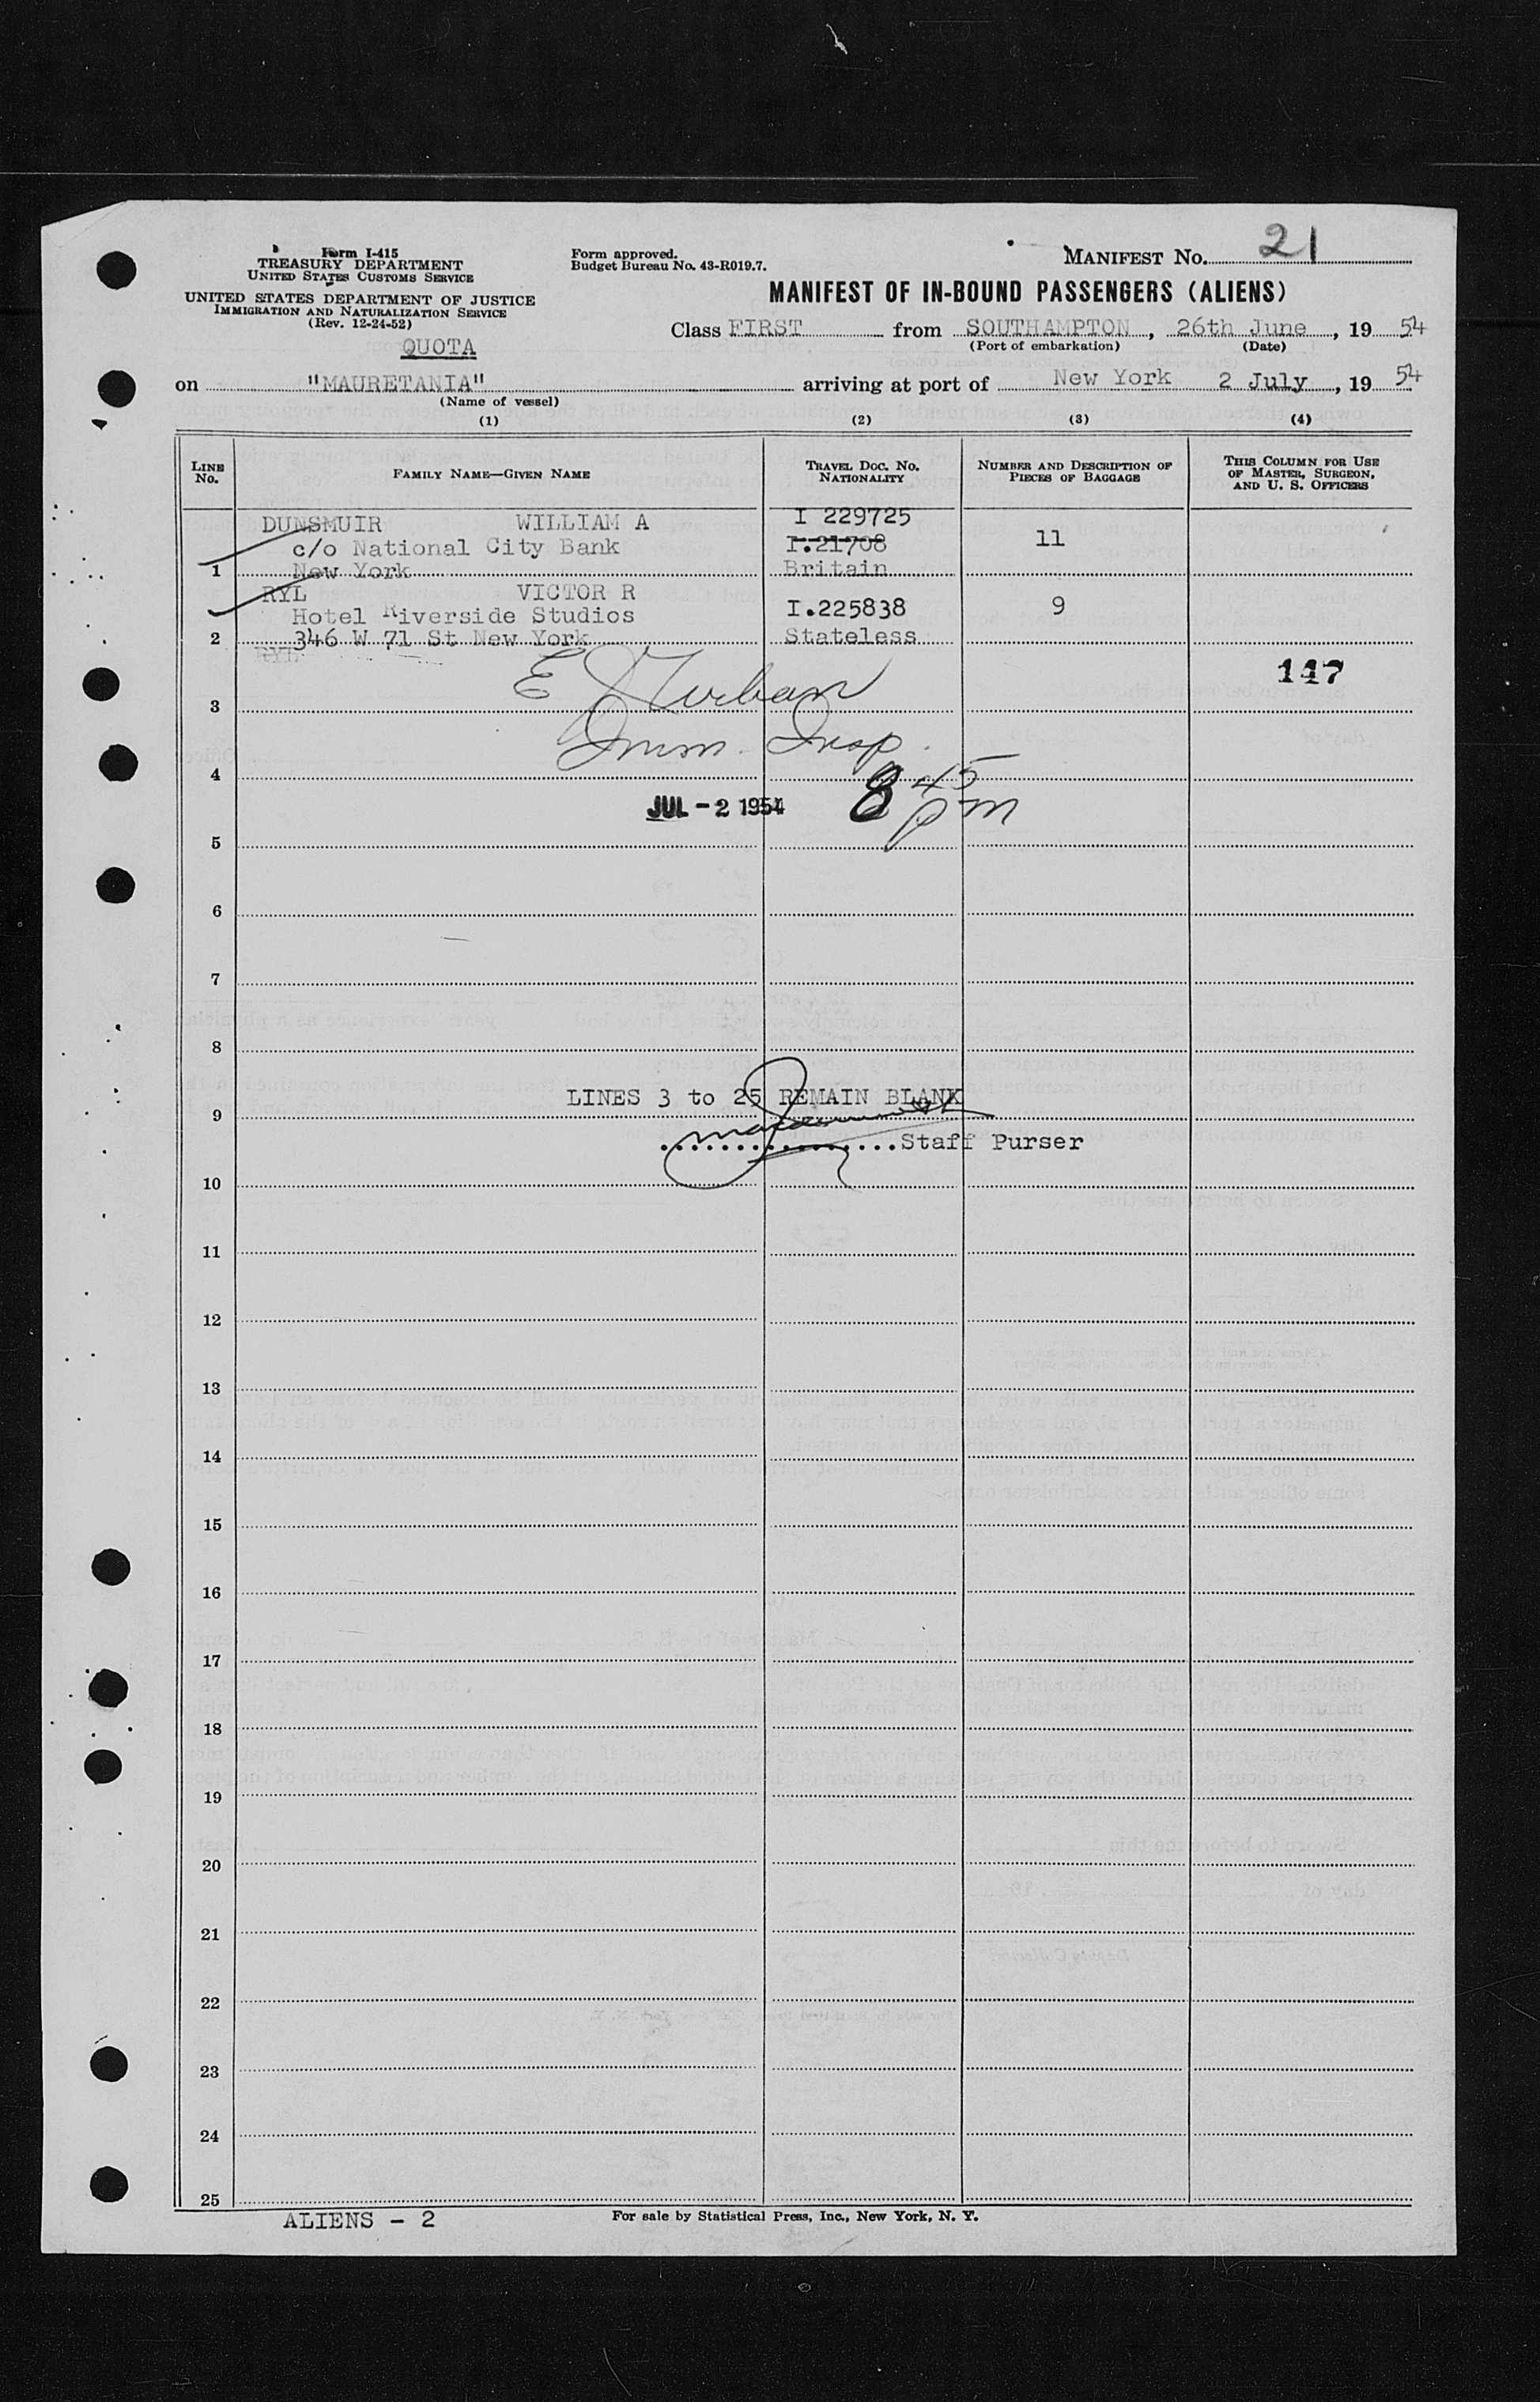 Form I-415
TREASURY DEPARTMENT
UNITED STATES CUSTOMS SERVICE
UNITED STATES DEPARTMENT OF JUSTICE
IMMIGRATION AND NATURALIZATION SERVICE
(Rev. 12-24-52)
QUOTA
Form approved.
Budget Bureau No. 43-R019.7.
MANIFEST No. 21
MANIFEST OF IN-BOUND PASSENGERS (ALIENS)
Class FIRST from SOUTHAMPTON, 26th June, 19 54
(Port of embarkation) (Date)
on "MAURETANIA" arriving at port of New York 2 July, 19 54
(Name of vessel)
(1) (2) (3) (4)
LINE No. FAMILY NAME—GIVEN NAME TRAVEL DOC. No. NATIONALITY NUMBER AND DESCRIPTION OF PIECES OF BAGGAGE THIS COLUMN FOR USE OF MASTER, SURGEON, AND U. S. OFFICERS
DUNSMUIR WILLIAM A I 229725
c/o National City Bank I.21708 11
1 New York Britain
RYL VICTOR R
Hotel Riverside Studios I.225838 9
2 346 W 71 St New York Stateless
RYL
147
3 E Urban
4 Imm. Insp.
JUL - 2 1954 8 45 pm
5
6
7
8
LINES 3 to 25 REMAIN BLANK
9
Staff Purser
10
11
12
13
14
15
16
17
18
19
20
21
22
23
24
25
ALIENS - 2
For sale by Statistical Press, Inc., New York, N. Y.